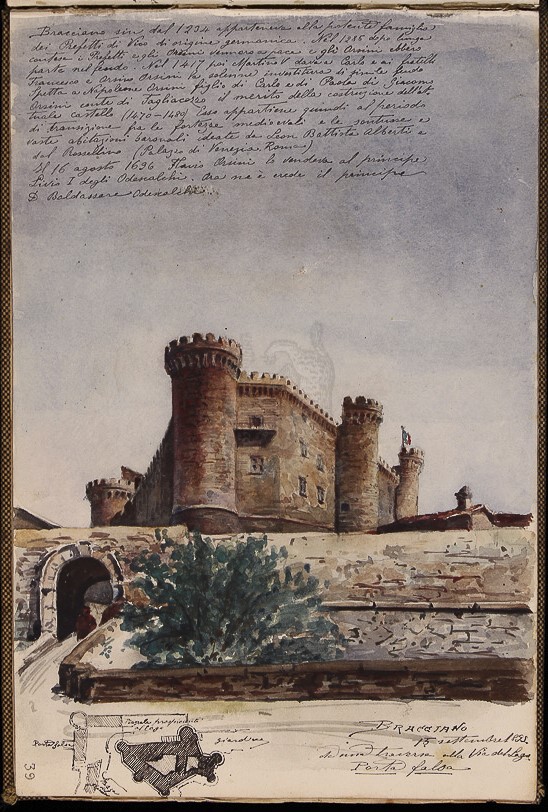 Bracciano sin dal 1234 apparteneva alla potente famiglia
dei Prefetti di Vico di origine germanica. Nel 1286 dopo lunga
contesa i Prefetti e gli Orsini vennero a pace e gli Orsini ebbero
parte nel feudo. Nel 1417 poi Martino V dava a Carlo e ai fratelli
Francesco e Orsino Orsini la solenne investitura di simile feudo
Spetta a Napoleone Orsini figlio di Carlo e di Paola di Giacomo
Orsini conte di Tagliacozzo il merito della costruzione dell'at
tuale castello (1470-1480) Esso appartiene quindi al periodo
di transizione fra le fortezze medioevali e le sontuose e
vaste abitazioni baronali ideate da Leon Battista Alberti e
dal Rossellino (Palazzo di Venezia, Roma)
Il 16 agosto 1696 Flavio Orsini lo vendeva al principe
Livio I degli Odescalchi. Ora ne è erede il principe
D. Baldassare Odescalchi
Porta falsa
Piazzale prospiciente
al lago
giardino
BRACCIANO
15 settembre
da una traversa alla Via del Lago
Porta falsa
39